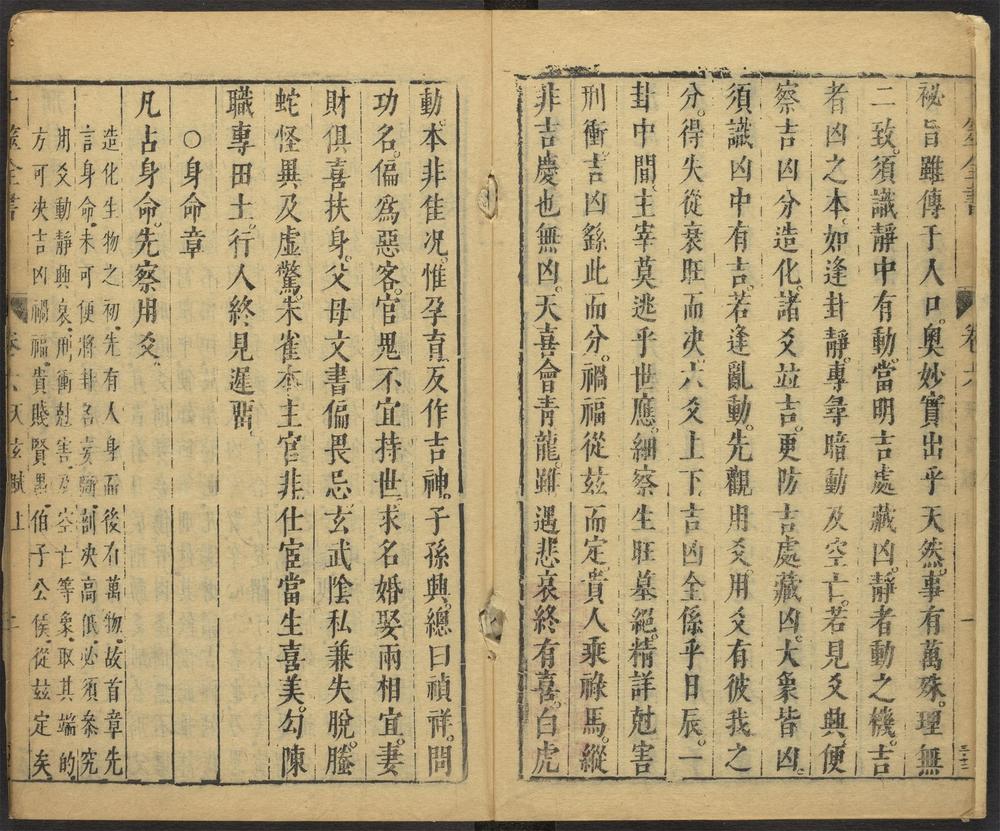 祕旨雖傳于人口。奧妙實出乎天然。事有萬殊。理無
二致。須識靜中有動。當明吉處藏凶。靜者動之機。吉
者凶之本。如逢卦靜。專尋暗動及空亡。若見爻興。便
察吉凶分造化。諸爻並吉。更防吉處藏凶。大象皆凶。
須識凶中有吉。若逢亂動。先觀用爻。用爻有彼我之
分。得失從衰旺而决。六爻上下。吉凶全係乎日辰。一
卦中間。主宰莫逃乎世應。細察生旺墓絕。精詳尅害
刑衝。吉凶繇此而分。禍福從玆而定。貴人乘祿馬。縱
非吉慶也無凶。天喜會靑龍。雖遇悲哀終有喜。白虎
動。本非佳况。惟孕育反作吉神。子孫興。總曰禎祥。問
功名。偏爲惡客。官鬼不宜持世。求名婚娶兩相宜。妻
財俱喜扶身。父母文書偏畏忌。玄武陰私兼失脫。螣
蛇怪異及虛驚。朱雀本主官非。仕宦當生喜美。勾陳
職專田土。行人終見遲留。
○身命章
凡占身命。先察用爻。
造化生物之初。先有人身而後有萬物。故首章先
言身命。未可便將卦名妄斷。剖决高低。必須參究
用爻動靜興衰。刑衝尅害及空亡等象。取其端的
方可决吉凶禍福。貴賤賢愚。伯子公侯。從玆定矣
卷六 天玄賦上